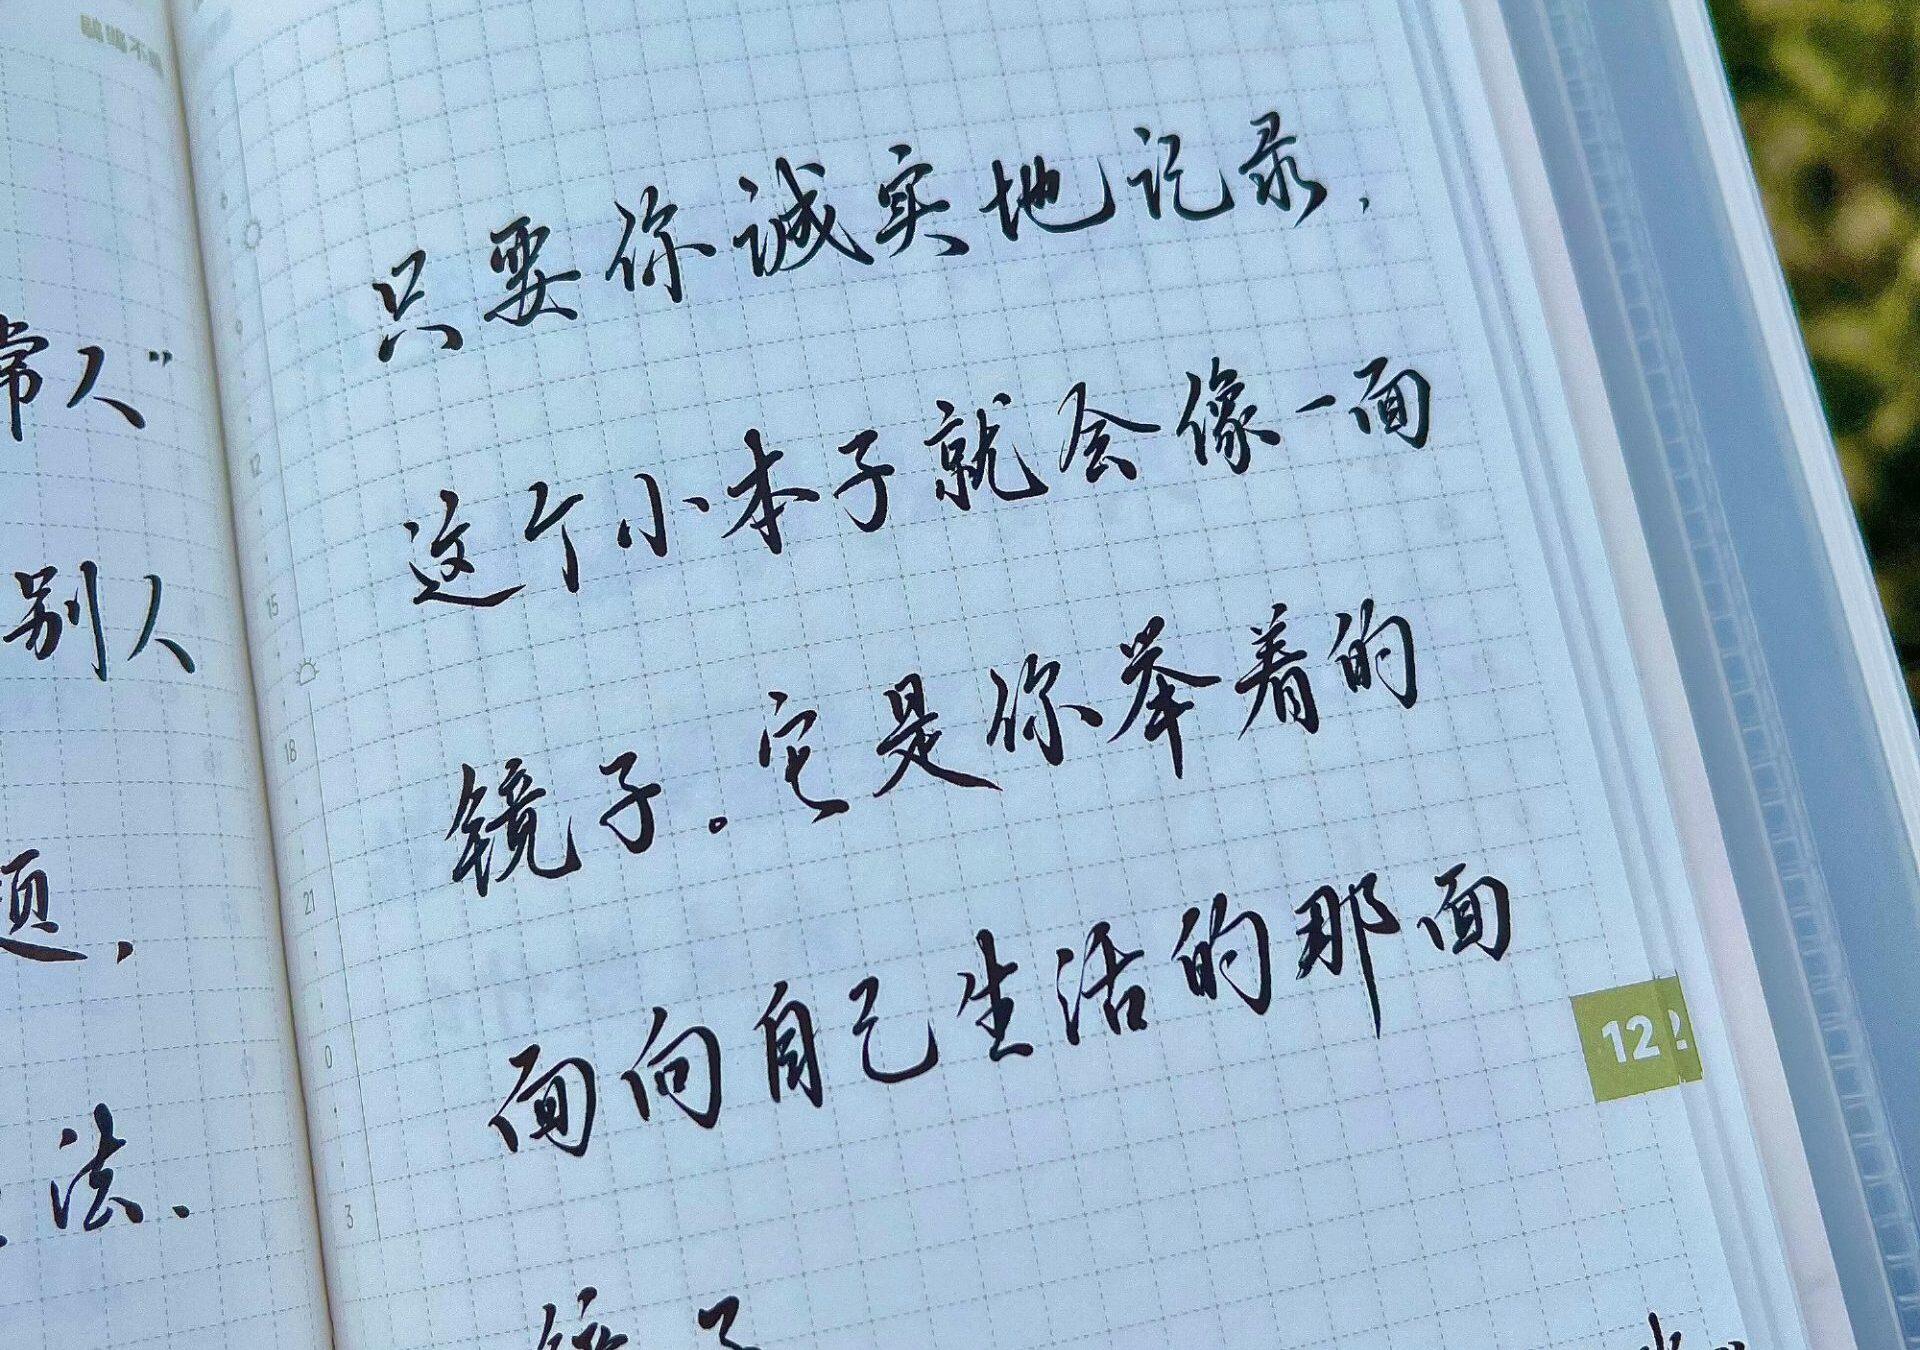 常人”
别人
题，
法、
只要你诚实地记录，
这个小本子就会像一面
镜子。它是你举着的
面向自己生活的那面
镜子
9
12
15
18
21
0
3
12